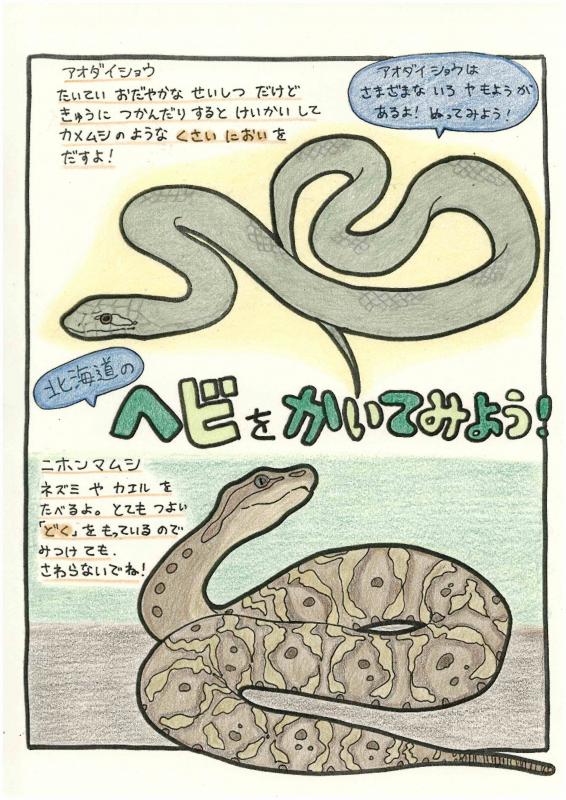 アオダイショウ
たいてい おだやかな せいしつ だけど
きゅうに つかんだり すると けいかい して
カメムシのような くさい においを
だすよ!
アオダイショウは
さまざまな いろ や もようが
あるよ! ぬってみよう!
北海道の
ヘビを かいてみよう!
ニホンマムシ
ネズミ や カエル を
たべるよ。とても つよい
「どく」を もっているので
みつけ ても、
さわらないでね!